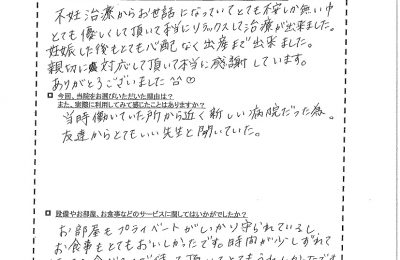 不妊治療からお世話になっていてとても不安しか無い中
とても優しくして頂いて本当にリラックスして治療が出来ました。
妊娠した後もとても心配なく出産まで出来ました。
親切に対応して頂いて本当に感謝しています。
ありがとうございました
今回、当院をお選びいただいた理由は?
また、実際に利用してみて感じたことはありますか?
当時働いていた所から近く新しい病院だった為。
友達からとてもいい先生と聞いていた。
設備やお部屋、お食事などのサービスに関してはいかがでしたか?
お部屋もプライベートがしっかり守られているし、
お食事もとてもおいしかったです。時間が少しずれて